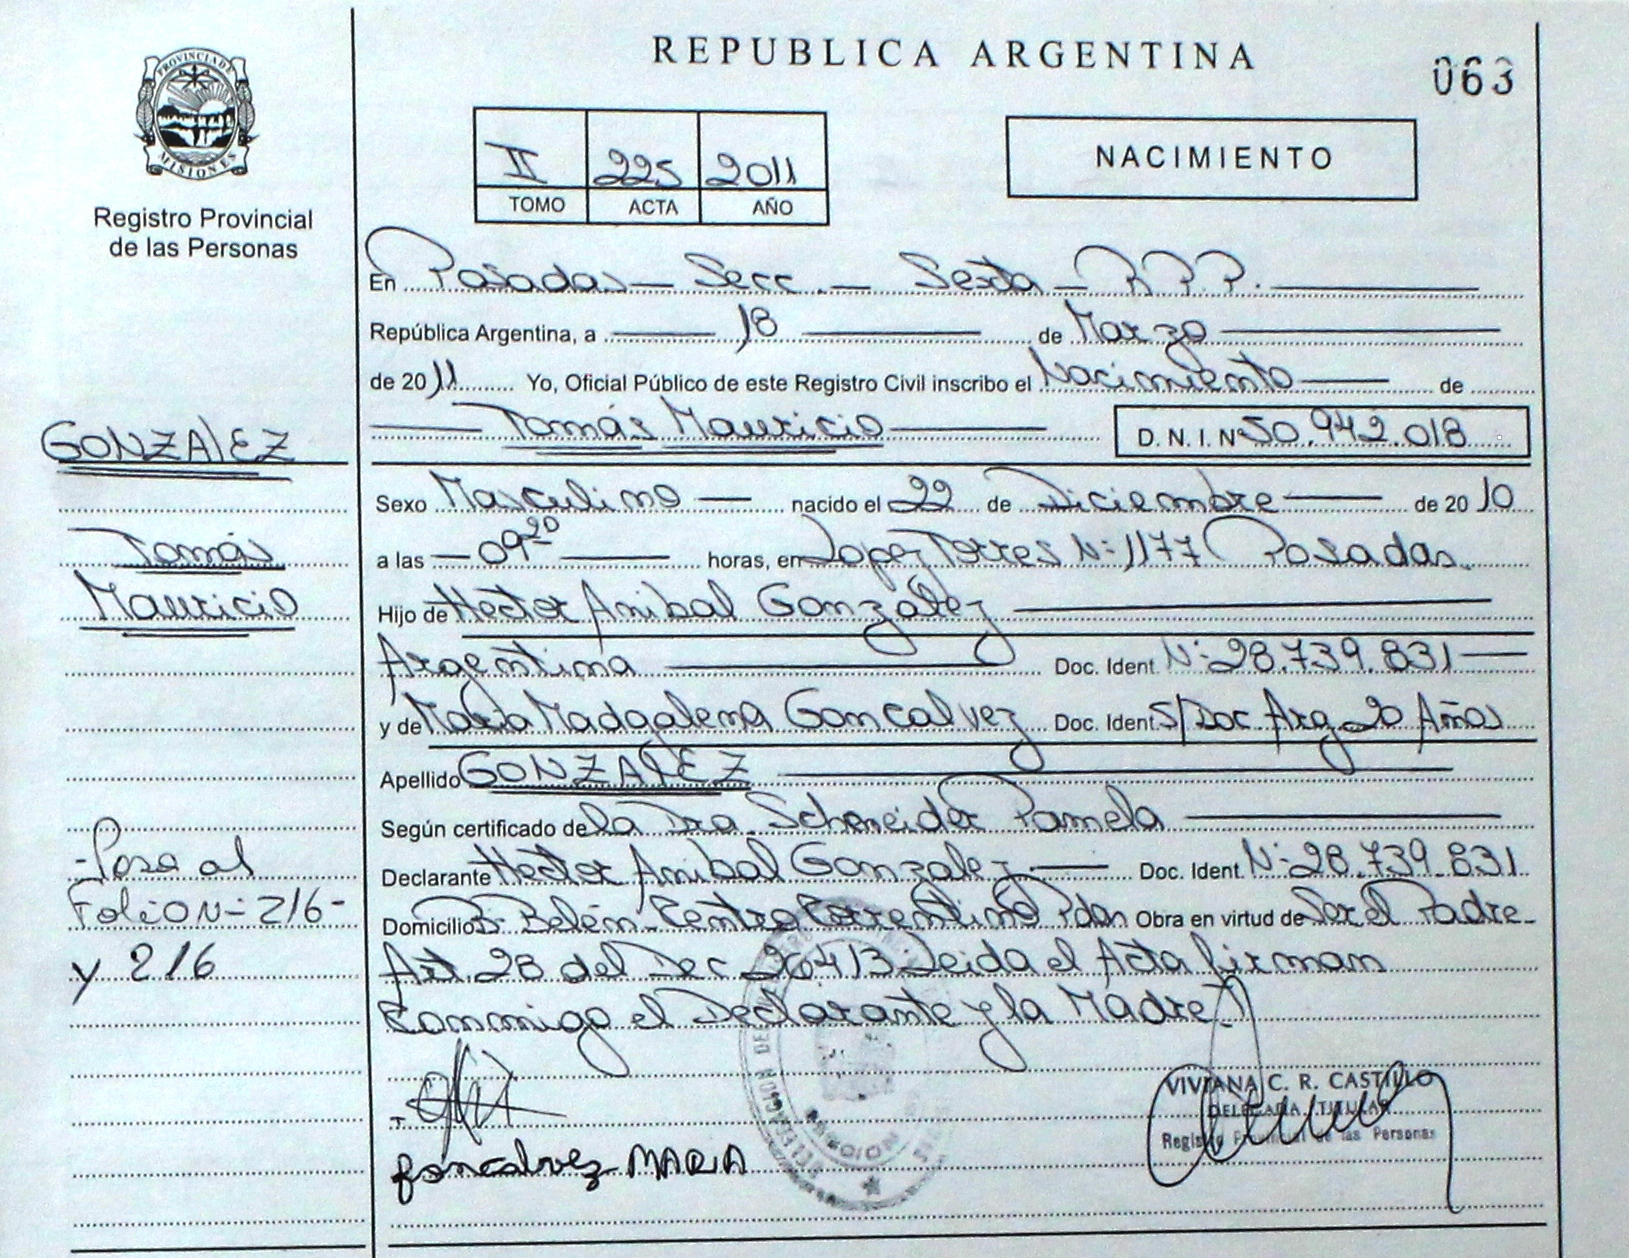 REPUBLICA ARGENTINA
063
PROVINCIA DE
MISIONES
Registro Provincial
de las Personas
II 225 2011
TOMO ACTA AÑO
NACIMIENTO
En Posadas - Secc. - Sexta - R.P.P.
República Argentina, a 18 de Marzo
de 2011 Yo, Oficial Público de este Registro Civil inscribo el Nacimiento de
Tomás Mauricio D. N. I. Nº 50.942.018
GONZALEZ
Sexo Masculino nacido el 22 de Diciembre de 2010
Tomás
a las 09 20 horas, en Lopez Torres Nº 1177 Posadas
Mauricio
Hijo de Hector Anibal Gonzalez
Argentina Doc. Ident. Nº 28.739.831
y de María Madgalena Goncalvez Doc. Ident. S/Doc Arg 20 Años
Apellido GONZALEZ
Según certificado de la Dra. Scheneider Pamela
-Pasa al
Declarante Hector Anibal Gonzalez Doc. Ident. Nº 28.739.831
Folio Nº 216-
Domicilio Bº Belén Centro Correntino Pdas Obra en virtud de Ser el Padre
y 216
Art. 28 del Dec 26413 Leida el Acta firman
Conmigo el Declarante y la Madre
VIVIANA C. R. CASTILLO
DELEGADA TITULAR
Registro Provincial de las Personas
goncalvez MARIA